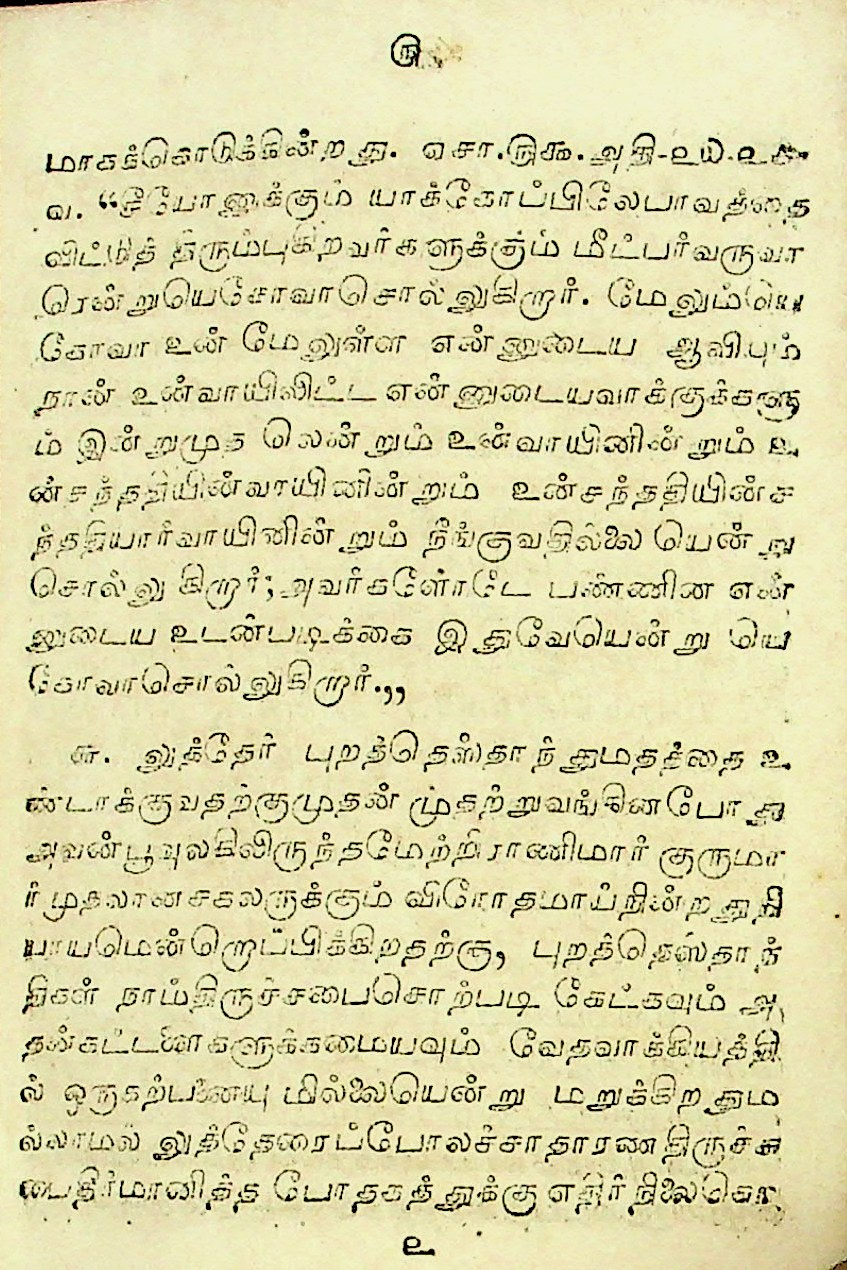 ௫
மாகக்கொடுக்கின்றது. ஏசா.௫௯.அதி-உ௰-உ௧.
வ. “சீயோனுக்கும் யாக்கோப்பிலேபாவத்தை
விட்டுத் திரும்புகிறவர்களுக்கும் மீட்பர்வருவா
ரென்றுயெகோவாசொல்லுகிறார். மேலும்யெ
கோவா உன் மேலுள்ள என்னுடைய ஆவியும்
நான் உன்வாயிலிட்ட என்னுடையவாக்குக்களு
ம் இன்றுமுத லென்றும் உன்வாயினின்றும் உ
ன்சந்ததியின்வாயினின்றும் உன்சந்ததியின்ச
ந்ததியார்வாயினின்றும் நீங்குவதில்லை யென்று
சொல்லு கிறார்; அவர்களோடே பண்ணின என்
னுடைய உடன்படிக்கை இதுவேயென்று யெ
கோவாசொல்லுகிறார்.,,
௬. லுத்தேர் புறத்தெஸ்தாந்துமதத்தை உ
ண்டாக்குவதற்குமுதன் முதற்றுவங்கினபோது
அவன்பூவுலகிலிருந்தமேற்றிராணிமார் குருமா
ர்முதலானசகலருக்கும் விரோதமாய்நின்றதுநி
யாயமென்றொப்பிக்கிறதற்கு, புறத்தெஸ்தாந்
திகள் நாம்திருச்சபைசொற்படி கேட்கவும் அ
தன்கட்டளைகளுக்கமையவும் வேதவாக்கியத்தி
ல் ஒருகற்பனையு மில்லையென்று மறுக்கிறதும
ல்லாமல் லுத்தேரைப்போலச்சாதாரண திருச்ச
பைதீர்மானித்த போதகத்துக்கு எதிர்நிலைகொ
உ